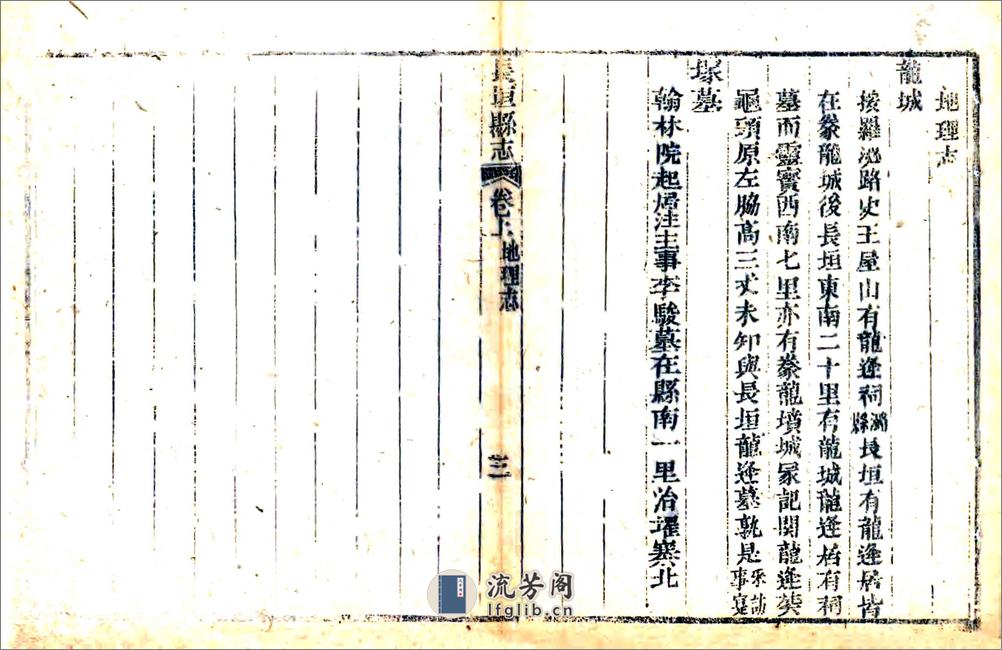 地理志
龍城
按羅泌路史王屋山有龍逢祠湖縣長垣有龍逢居皆
在豢龍城後長垣東南二十里有龍城龍逢居有祠
墓而靈寶西南七里亦有豢龍墳城冢記関龍逢葬
龜頭原左脇高三丈未知與長垣龍逢墓孰是采訪事寔
塚墓
翰林院起居注主事李駿墓在縣南一里冶墀寨北
長垣縣志 卷上 地理志 三
流芳阁
lfglib.cn